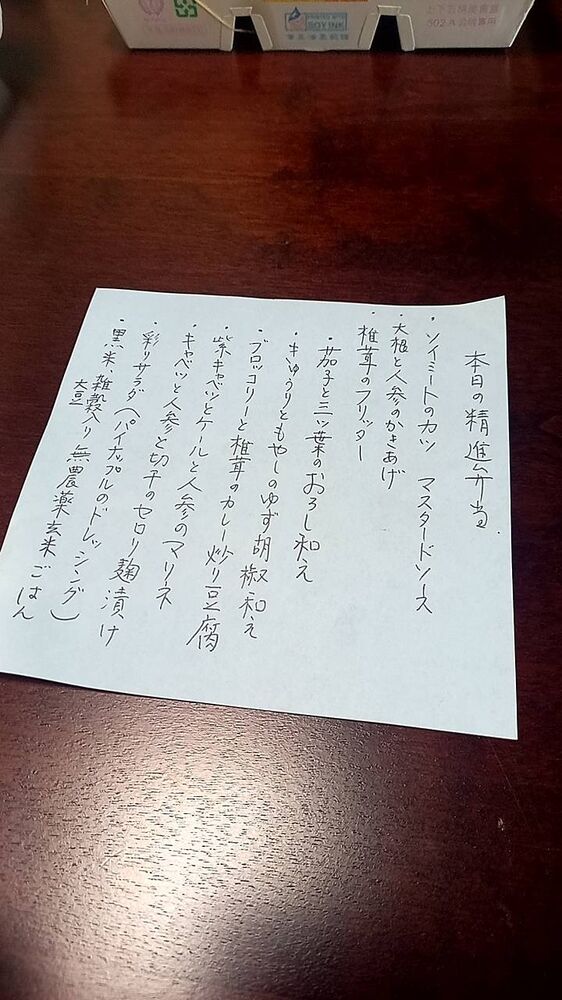 本日の精進弁当.
・ソイミートのカツ マスタードソース
・大根と人参のかきあげ
・椎茸のフリッター
・茄子と三ッ葉のおろし和え
・きゅうりともやしのゆず胡椒和え
・ブロッコリーと椎茸のカレー炒り豆腐
・紫キャベツとケールと人参のマリネ
・キャベツと人参と切干のセロリ麹漬け
・彩りサラダ(パイナップルのドレッシング)
・黒米 雑穀入り 無農薬玄米ごはん
大豆
SOY INK
502-A